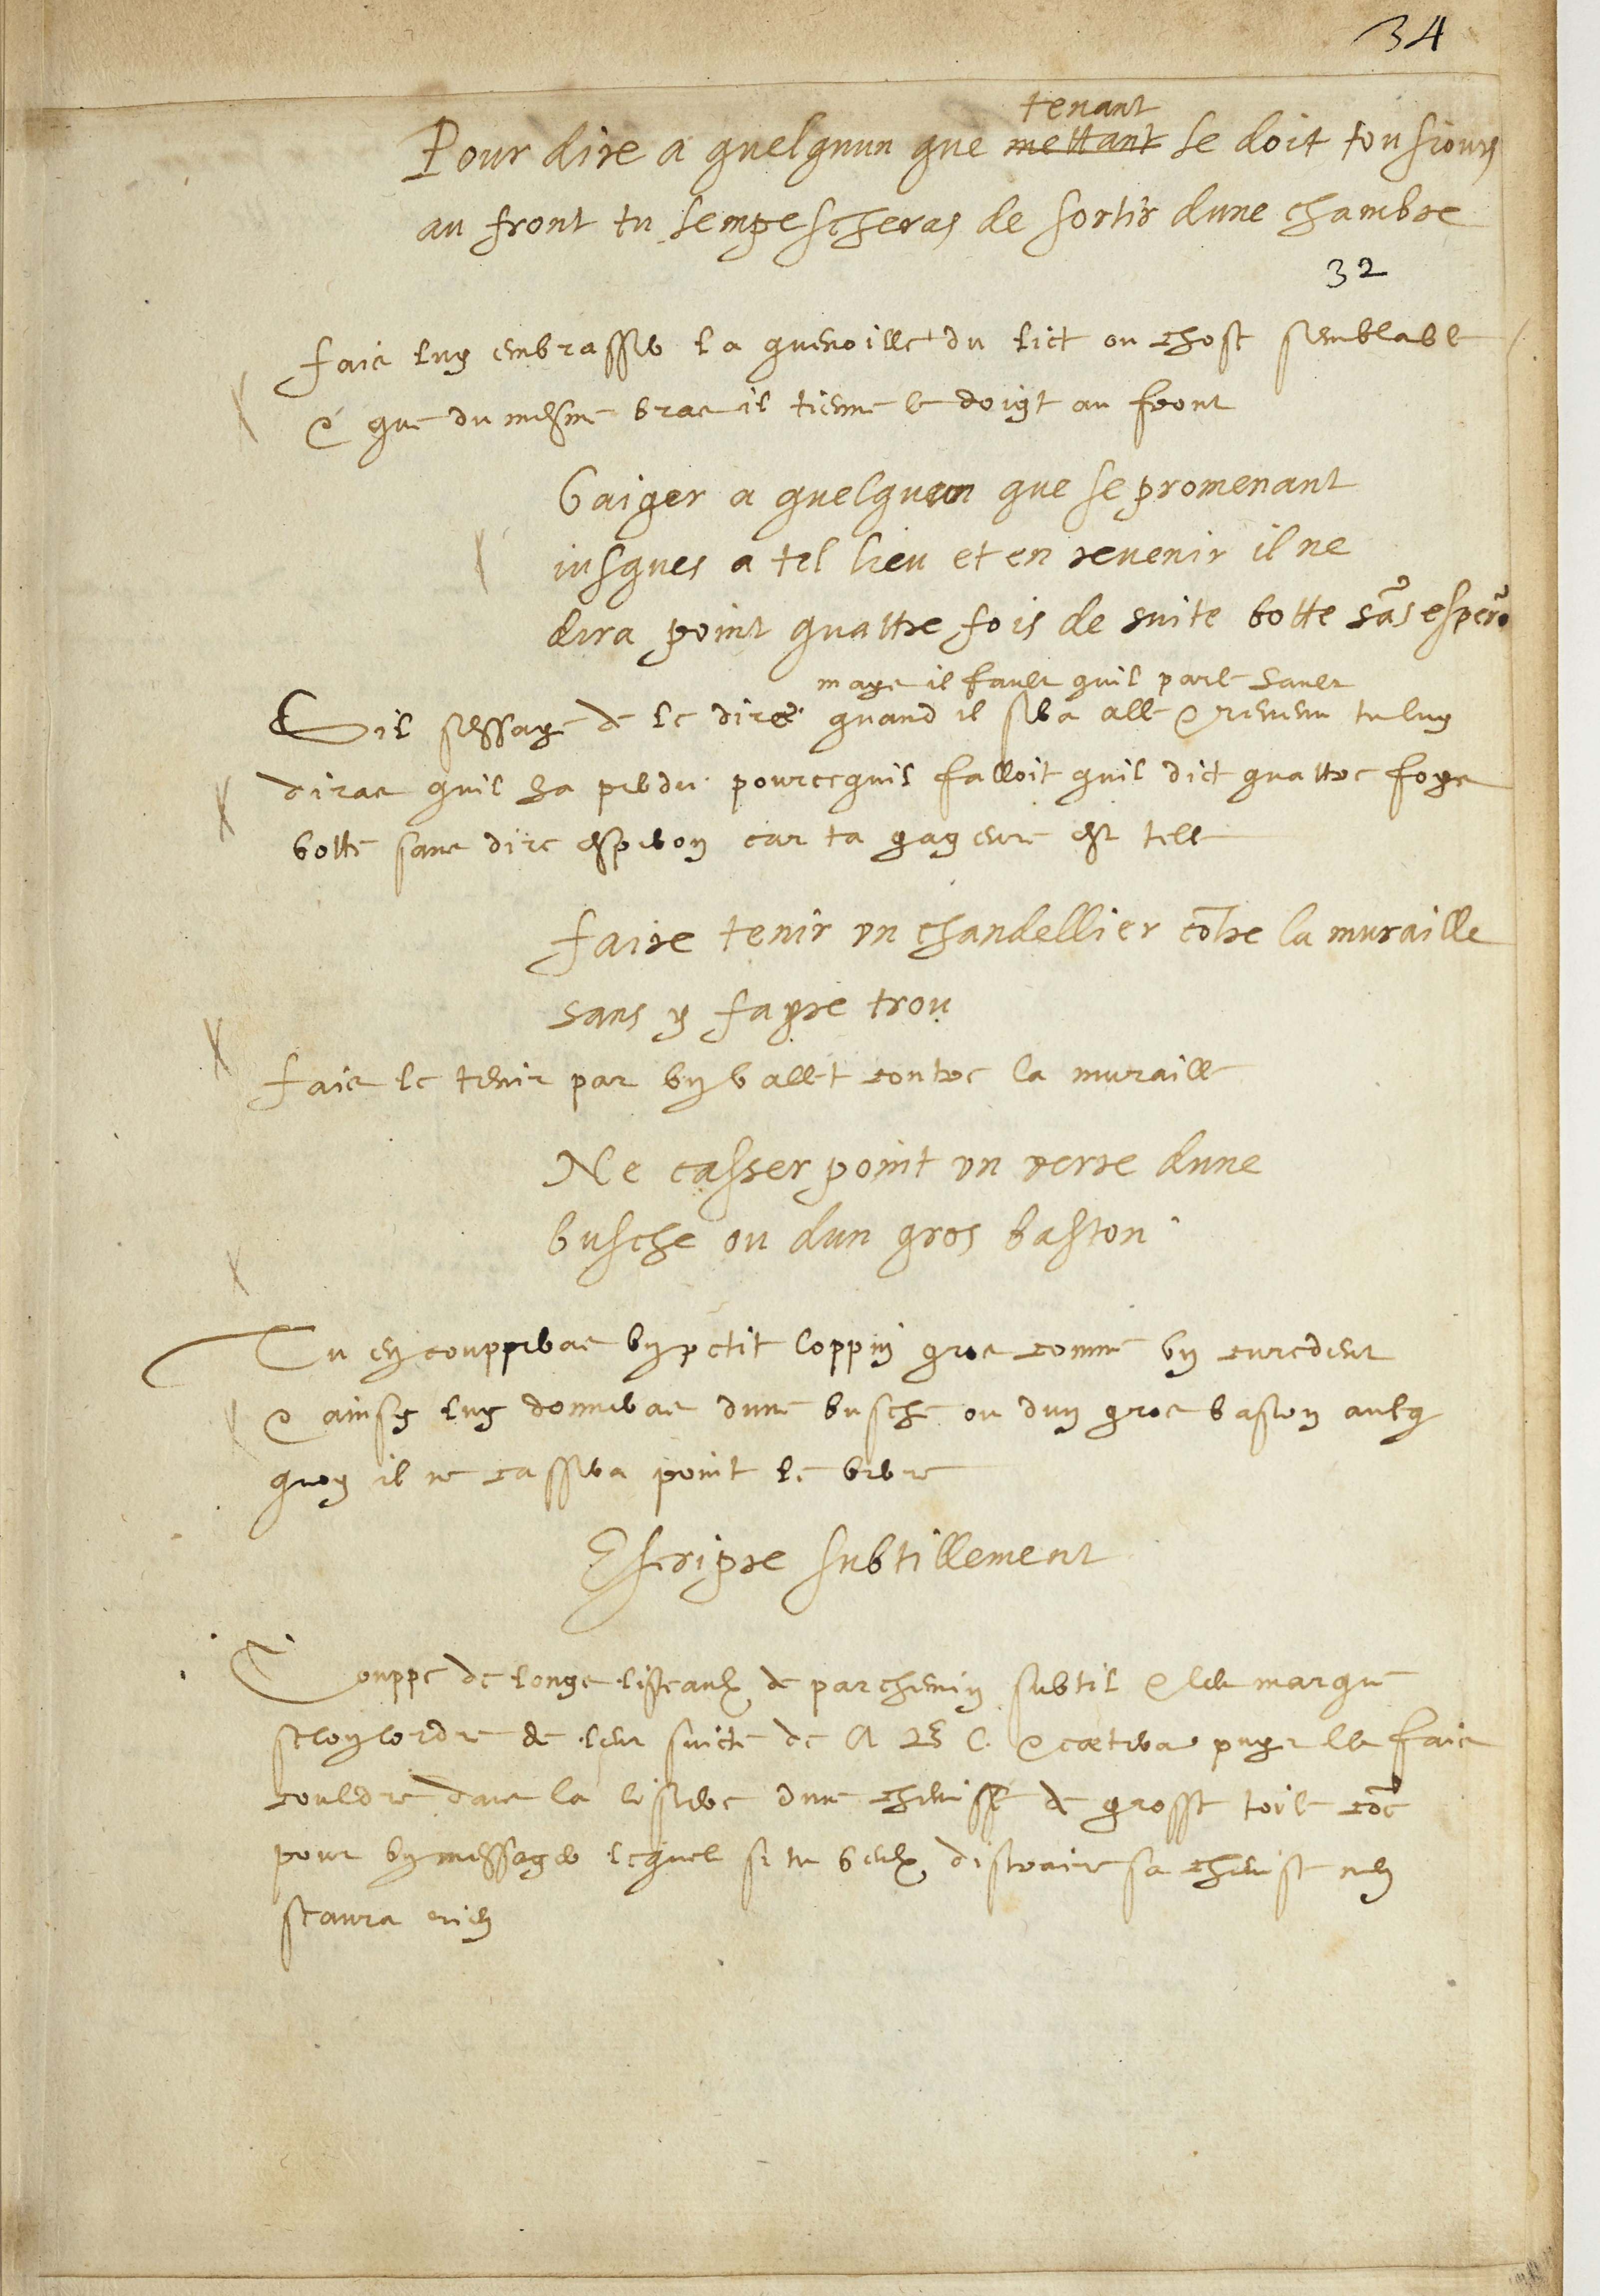 34
tenant
Pour dire a quelquun que mettant le doit tousiours
au front tu lempescheras de sortir dune chambre
32
fais luy embrasser la quenoille + du lict ou chose semblable
& que du mesme bras il tienne le doigt au front
Gaiger a quelquun que se promenant
iusques a tel lieu et en revenir il ne
dira point quattre fois de suite botte sãs esperõ
mays il fault quil parle hault
Sil sessaye de le dire quand il sera alle & revenu tu luy
diras quil ha perdu pourcequil falloit quil dict quattre foys
botte sans dire esperon car ta gageure est telle
faire tenir un chandellier cõtre la muraille
sans y fayre trou
fais le tenir par un vallet contre la muraille
Ne casser point un verre dune
busche ou dun gros baston
Tu en coupperas un petit loppin gros comme un curedent
& ainsy luy donneras dune busche ou dun gros baston avecq
quoy il ne cassera point le verre
Escripre subtillement
Couppe de longs listeaulx de parchemin subtil & les marque
selon lordre de leur suicte de A B C & cætera puys les fais
couldre dans la lisiere dune chemise de grosse toile cõe
pour un messager lequel si tu veulx distraire sa chemise nen
scaura rien